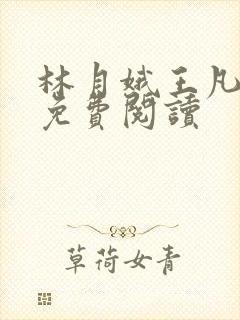 林月娥王凡
免費閱讀
草荷女青